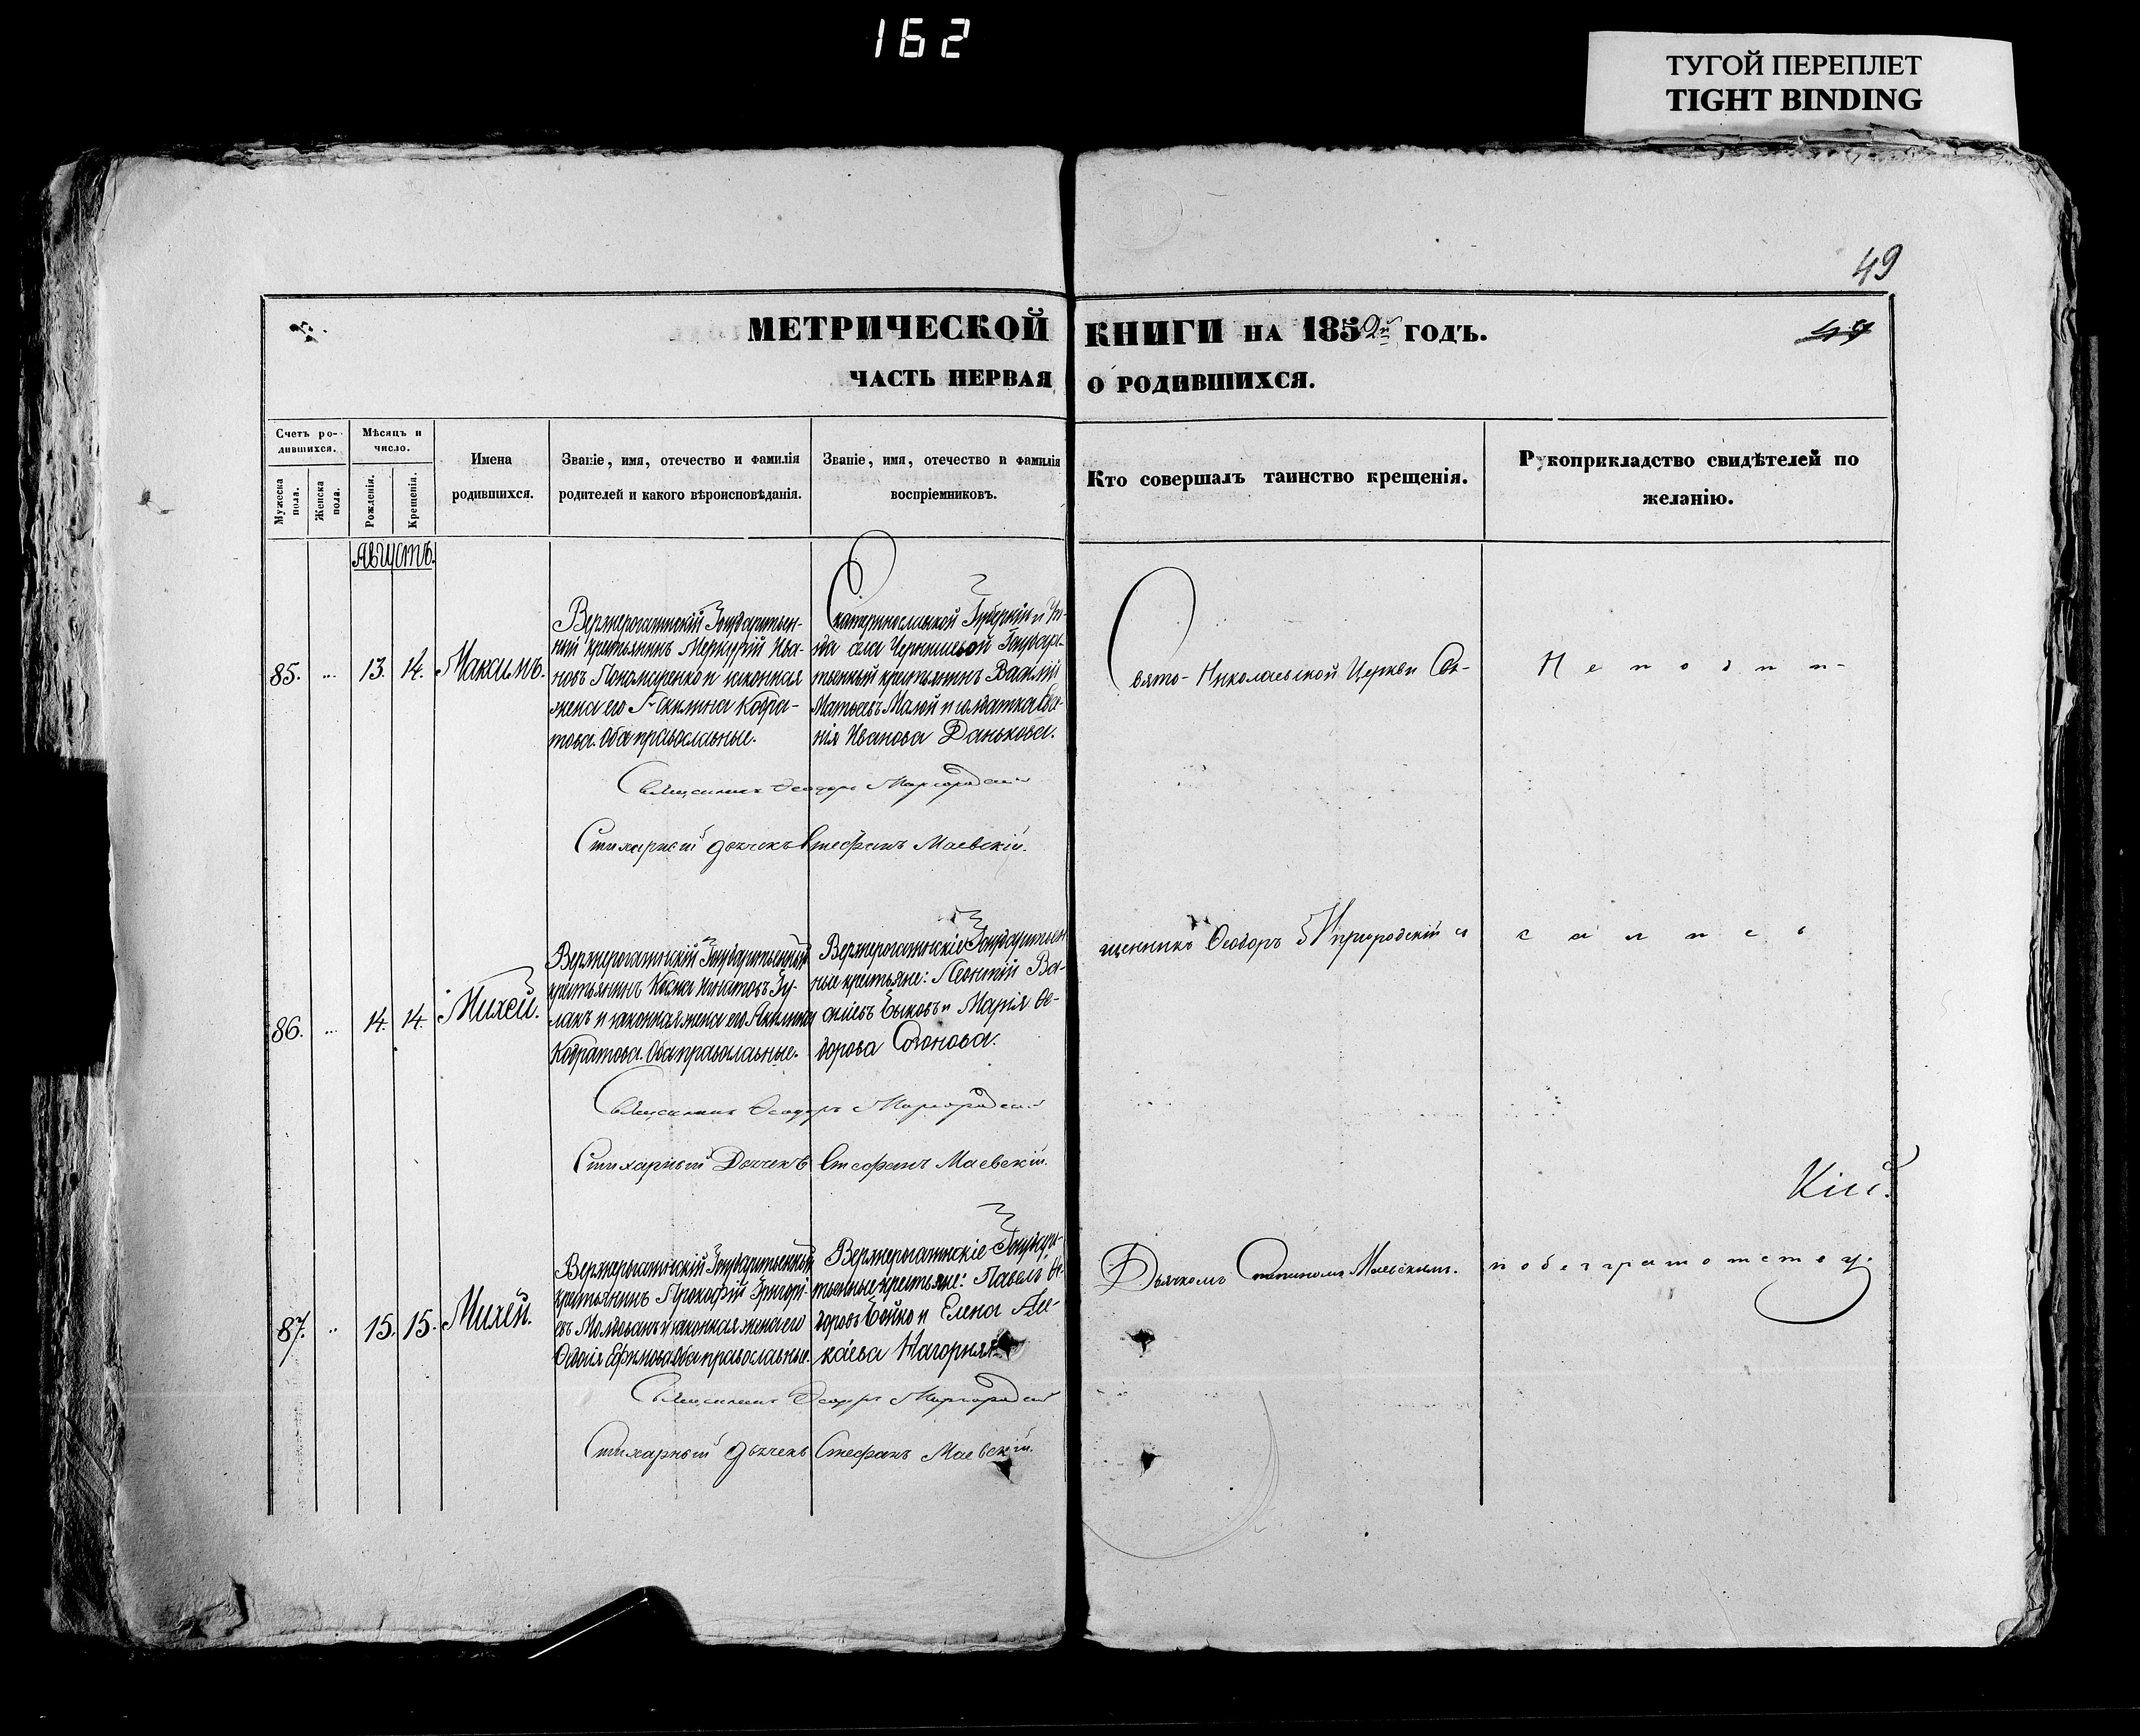 162
ТУГОЙ ПЕРЕПЛЕТ
TIGHT BINDING
49
МЕТРИЧЕСКОЙ КНИГИ НА 1852й ГОДЪ.
49
ЧАСТЬ ПЕРВАЯ О РОДИВШИХСЯ.
Счетъ ро-
дившихся.
Мужеска
пола.
Женска
пола.
Мѣсяцъ и
число.
Рожденія.
Крещенія.
Имена
родившихся.
Званіе, имя, отечество и фамилія
родителей и какого вѣроисповѣданія.
Званіе, имя, отечество и фамилія
воспріемниковъ.
Кто совершалъ таинство крещенія.
Рукоприкладство свидѣтелей по
желанію.
Августъ.
85. ... 13. 14. Максимъ.
Верхнерогачинскій Государствен-
ный крестьянинъ Меркурій Ива-
новъ Пономаренко и законная
жена его Акилина Кодра-
това. Оба православные.
Екатеринославской Губерніи и Уѣ-
зда села Чернышевой Государ-
ственный крестьянинъ Василій
Матвѣевъ Малой и солдатка
нія Иванова Данькова.
Священникъ Ѳеодоръ Миргородскій
Стихарный дьячекъ Стефанъ Маевскій.
86. ... 14. 14. Михей.
Верхнерогачинскій Государственный
крестьянинъ Козма Игнатовъ Гу-
лакъ и законная жена его Акилина
Кодратова. Оба православные.
Верхнерогачинскіе Государствен
ные крестьяне: Леонтій Ва-
силіевъ Быковъ и Марія Ѳе-
дорова Сотонова.
Священникъ Ѳеодоръ Миргородскій
Стихарный Дьячекъ Стефанъ Маевскій.
87. .. 15. 15. Михей.
Верхнерогачинскій Государственный
крестьянинъ Прокофій Григорі-
евъ Молдованъ и законная жена его
Ефимова. Оба православные.
Верхнерогачинскіе Государ-
ственные крестьяне: Павелъ Ѳе-
доровъ Бойко и Елена Але-
каева Нагорняя.
Священникъ Ѳеодоръ Миргородскій
Стихарный дьячекъ Стефанъ Маевскій.
Свято-Николаевской Церкви Свя-
щенникъ Ѳеодоръ Миргородскій съ
Дьячкомъ Маевскимъ.
Неподпи-
сались
Кій.
по безграмотству.